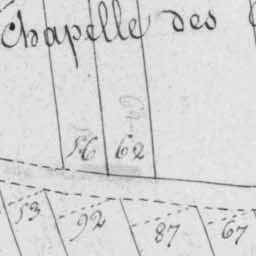 chapelle des
56 62
53 92 87 67